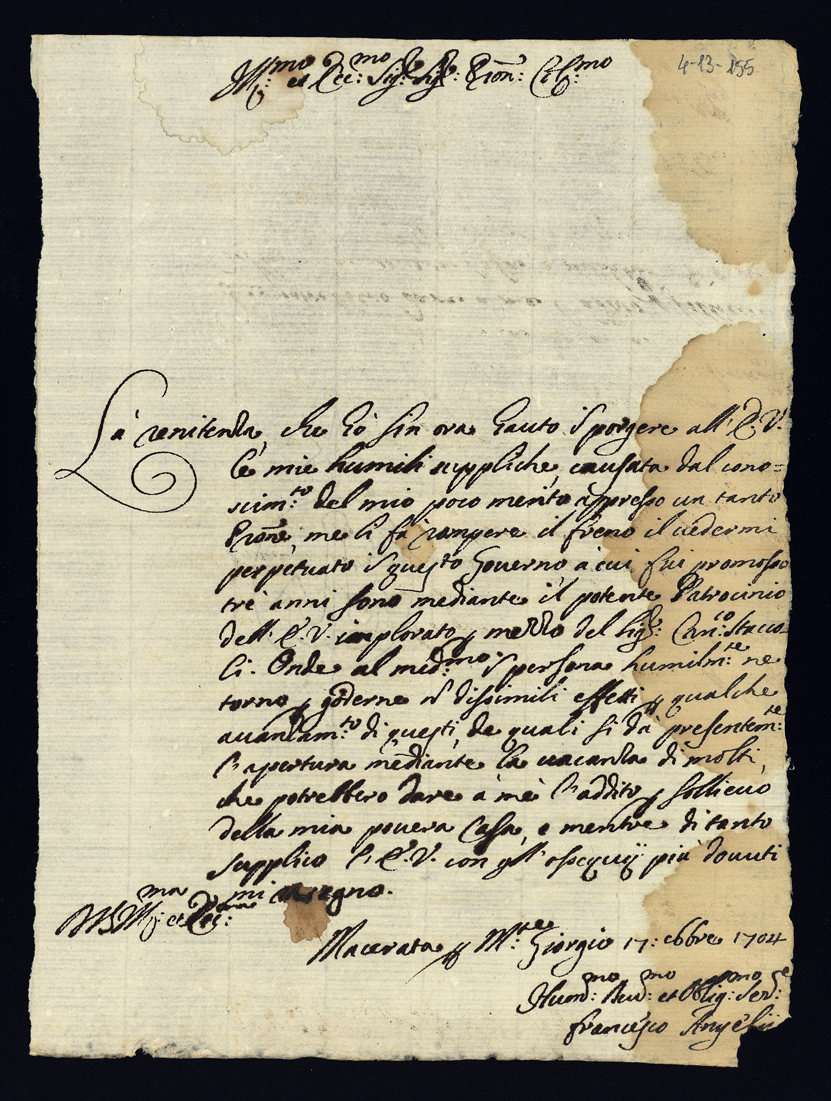 Ill:mo et Ecc:mo Sig:re Sig:re Pron: Col:mo
4-13-155
La renitenza, che hò sin ora hauto i porgere all' E. V.
le mie humili suppliche, causata dal cono=
scim:to del mio poco merito appresso un tanto
Prone, me li fà rompere il freno il uedermi
perpetuato i questo Gouerno à cui fui promosso
trè anni sono mediante il potente Patrocinio
dell' E. V. implorato p mezzo del Sig:r Can:co Stacco
li. Onde al med:mo i persona humilm:te ne
torno p goderne n dissimili effetti p qualche
auanzam:to di questi, de quali si dà presentem:te
l'apertura mediante la uacanza di molti,
che potrebbero dare à mè l'addito p sollieuo
della mia pouera Casa, e mentre di tanto
supplico l'E. V. con gl' ossequij più douuti
mi rasegno.
V. S. Ill:ma et Ecc:ma
Macerata p M:te Giorgio 17: 8bre 1704
Hum:mo Deu:mo et Oblig:mo Ser:e
Francesco Angelij